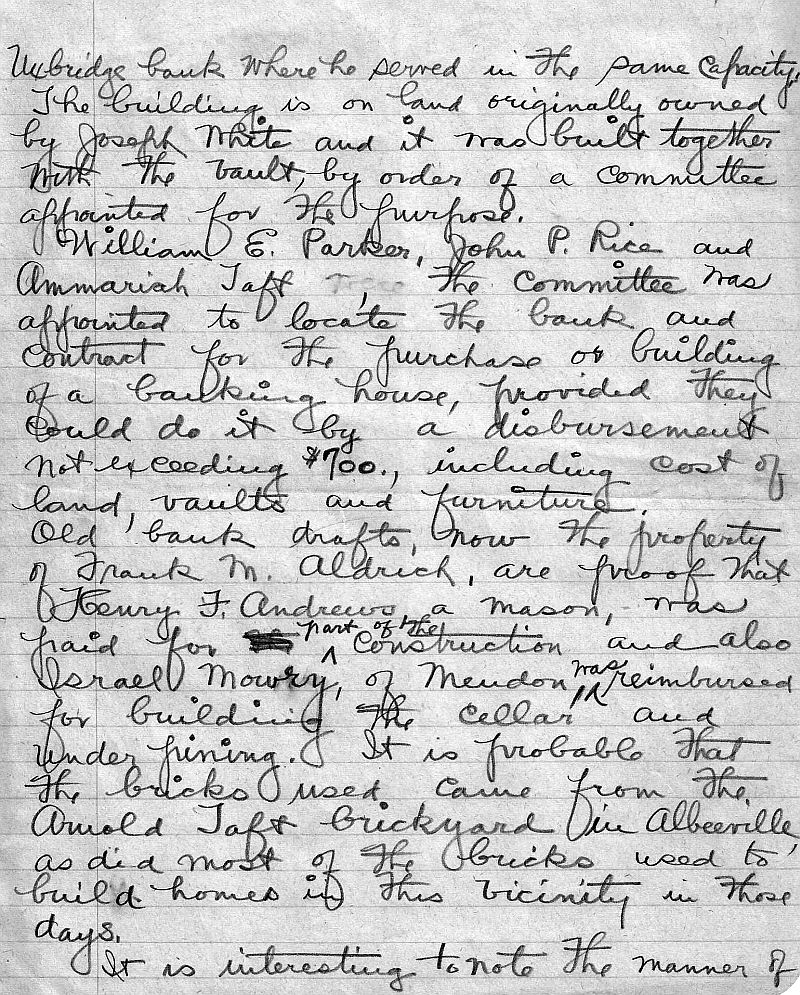 Uxbridge bank where he served in the same capacity.
The building is on land originally owned
by Joseph White and it was built together
with the vault, by order of a committee
appointed for the purpose.
William E. Parker, John P. Rice and
Ammariah Taft, the committee was
appointed to locate the bank and
contract for the purchase or building
of a banking house, provided they
could do it by a disbursement
not exceeding $700., including cost of
land, vaults and furniture.
Old bank drafts, now the property
of Frank M. Aldrich, are proof that
Henry F. Andrews, a mason, was
paid for part of the construction and also
Israel Mowry, of Mendon was reimbursed
for building the cellar and
under pining. It is probable that
the bricks used came from the
Arnold Taft brickyard in Albeeville,
as did most of the bricks used to
build homes in this vicinity in those
days.
It is interesting to note the manner of